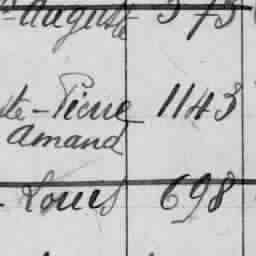 Auguste 373
te-Pierre 1143
Amand
Louis 698